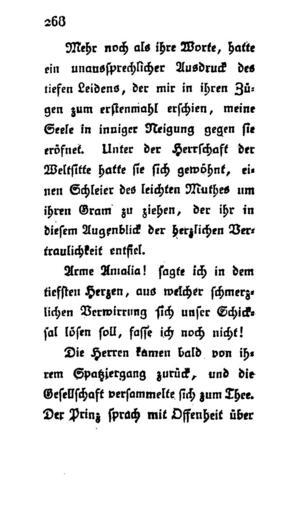 268
Mehr noch als ihre Worte, hatte
ein unaussprechlicher Ausdruck des
tiefen Leidens, der mir in ihren Zü-
gen zum erstenmahl erschien, meine
Seele in inniger Neigung gegen sie
eröfnet. Unter der Herrschaft der
Weltsitte hatte sie sich gewöhnt, ei-
nen Schleier des leichten Muthes um
ihren Gram zu ziehen, der ihr in
diesem Augenblick der herzlichen Ver-
traulichkeit entfiel.
Arme Amalia! sagte ich in dem
tiefsten Herzen, aus welcher schmerz-
lichen Verwirrung sich unser Schick-
sal lösen soll, fasse ich noch nicht!
Die Herren kamen bald von ih-
rem Spatziergang zurück, und die
Gesellschaft versammelte sich zum Thee.
Der Prinz sprach mit Offenheit über